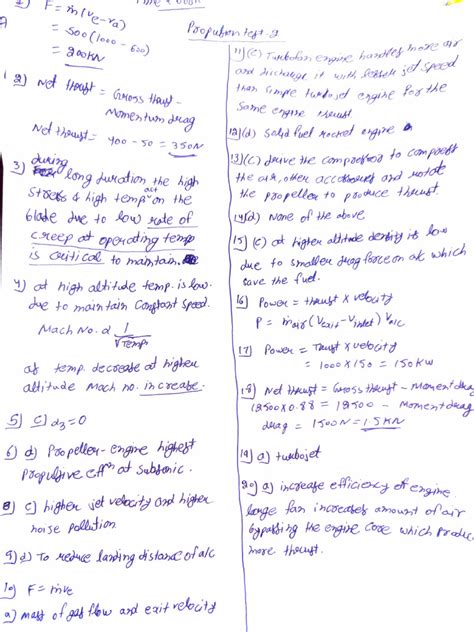 1) F = ṁ(ve-va)
= 500(1000-600)
= 200KN
2) Net thrust = Gross thrust -
Momentum drag
Net thrust = 400-50 = 350N
during
3) long duration the high
stress & high temp act on the
blade due to low rate of
creep at operating temp
is critical to maintain.
4) at high altitude temp. is low.
due to maintain constant speed.
Mach No. α 1/√Temp.
as temp. decrease at higher
altitude Mach no. increase.
5) C) d3=0
6) d) Propeller-engine highest
Propulsive effn at subsonic.
8) c) higher jet velocity and higher
noise pollution
9) d) To reduce landing distance of a/c
10) F = ṁve
a) mass of gas flow and exit velocity
Propulsion test-2
11) (c) Turbofan engine handles more air
and discharge it with lesser jet speed
than simple turbojet engine for the
same engine thrust.
12) (d) Solid fuel rocket engine
13) (C) drive the compressor to compress
the air, other accessories and rotate
the propeller to produce thrust.
14) (d) None of the above
15) (c) at higher altitude density is low
due to smaller drag force on a/c which
save the fuel.
16) Power = thrust x velocity
P = ṁair (Vexit - Vinlet) Va/c
17) Power = Thrust x velocity
= 1000 x 150 = 150 KW
18) Net thrust = Gross thrust - Moment drag
12500x0.88 = 12500 - Moment drag
drag = 1500N = 1.5KN
19) a) turbojet
20) a) increase efficiency of engine
large fan increases amount of air
bypassing the engine core which produce
more thrust.